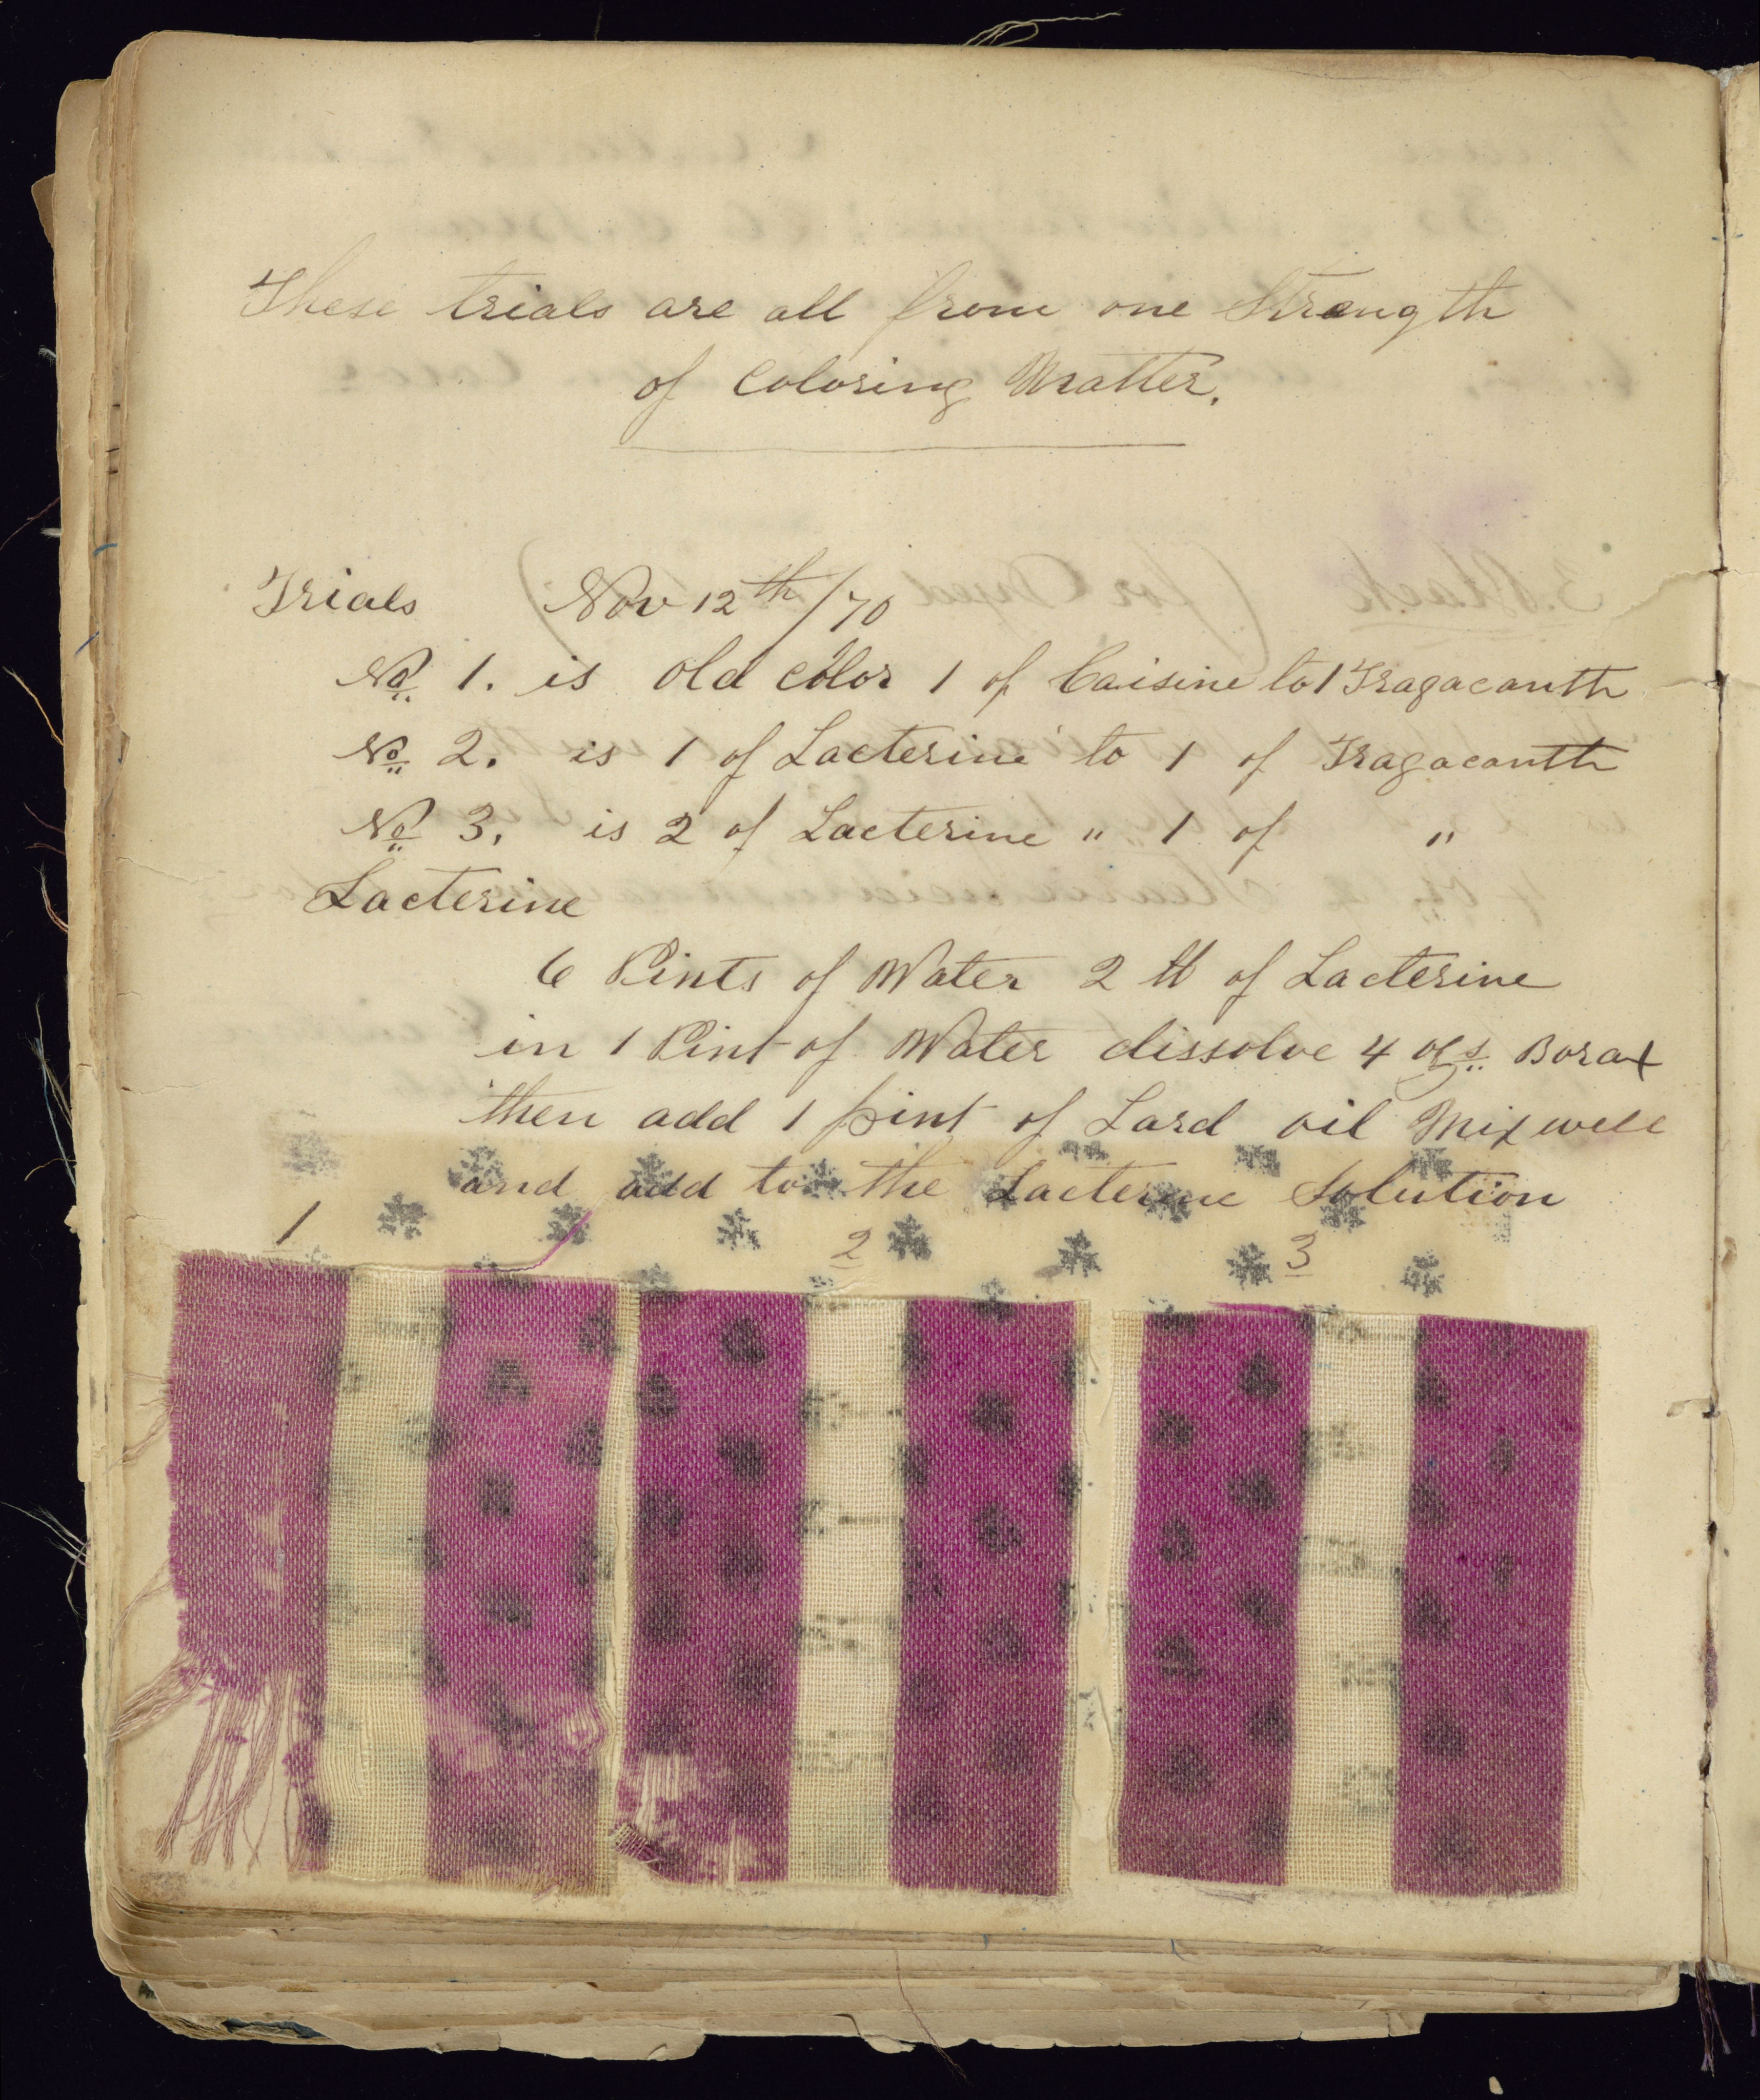 These trials are all from one Strength
of Coloring Matter.
Trials Nov 12th/70
No 1. is old color 1 of Caisine to 1 Tragacanth
No 2. is 1 of Lacterine to 1 of Tragacanth
No 3. is 2 of Lacterine " 1 of "
Lacterine
6 Pints of Water 2 ℔ of Lacterine
in 1 Pint of Water dissolve 4 ozs Borax
then add 1 pint of Lard oil Mix well
and add to the Lacterine Solution
1 2 3